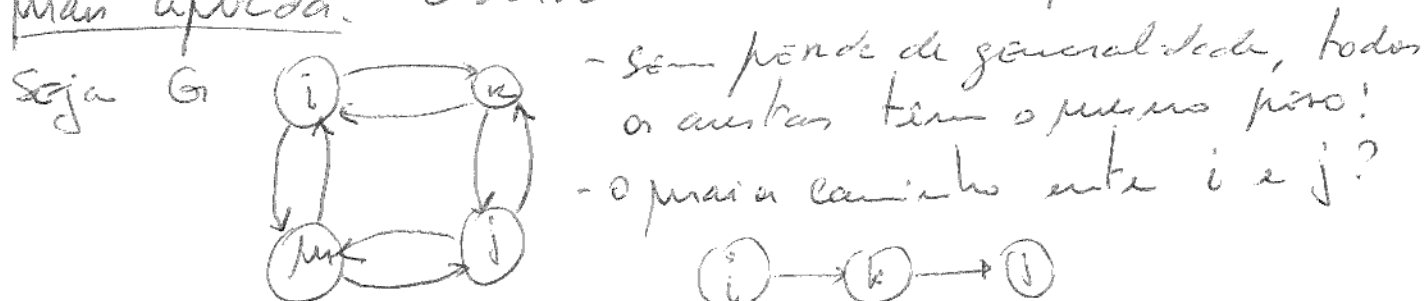 Seja G
i
k
- Sem perda de generalidade, todas
as arestas têm o mesmo peso!
- O maior caminho entre i e j?
m
j
i
k
j